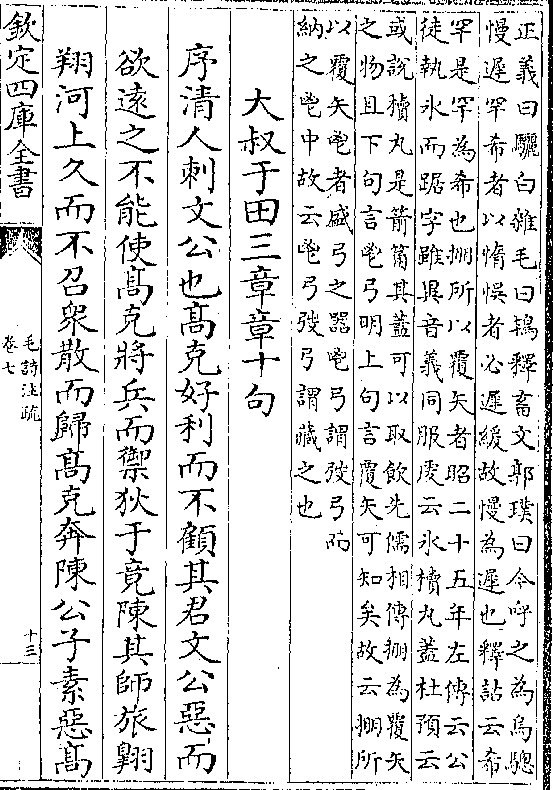 正義曰驪白雜毛曰鴇釋畜文郭璞曰今呼之為烏驄
慢遲罕希者以惰悞者必遲緩故慢為遲也釋詁云希
罕是罕為希也掤所以覆矢者昭二十五年左傳云公
徒執冰而踞字雖異音義同服虔云冰櫝丸蓋杜預云
或說犢丸是箭筩其蓋可以取飲先儒相傳掤為覆矢
之物且下句言鬯弓明上句言覆矢可知矣故云掤所
以覆矢鬯者盛弓之器鬯弓謂弢弓而
納之鬯中故云鬯弓弢弓謂藏之也
大叔于田三章章十句
序清人刺文公也髙克好利而不顧其君文公惡而
欲逺之不能使髙克將兵而禦狄于竟陳其師旅翺
翔河上久而不召衆散而歸髙克奔陳公子素惡髙
欽定四庫全書
毛詩注疏
卷七
十三